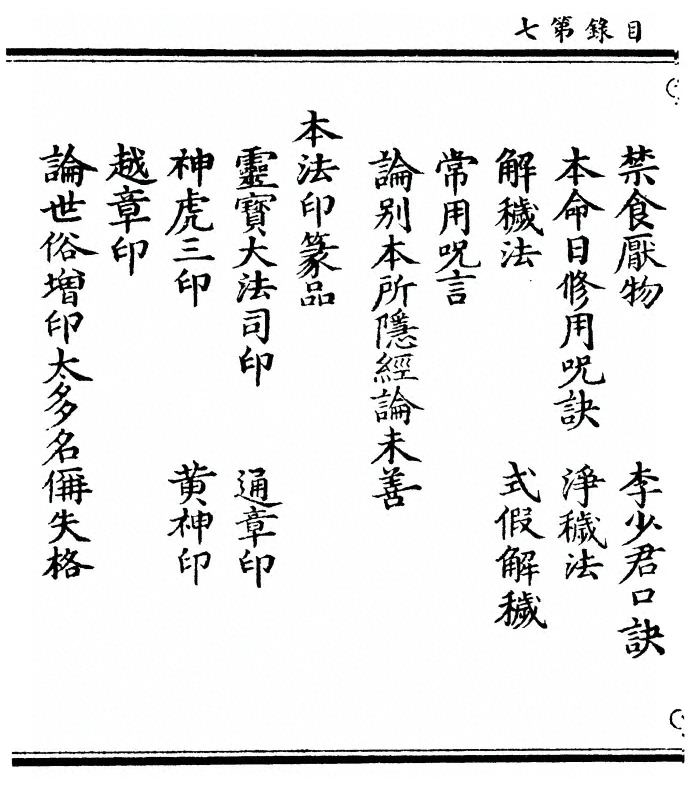 目錄第七
禁食厭物　李少君口訣
本命日修用呪訣　淨穢法
解穢法　式假解穢
常用呪言
論別本所隱經論未善
本法印篆品
靈寶大法司印　通章印
神虎三印　黃神印
越章印
論世俗增印太多名㒺失格